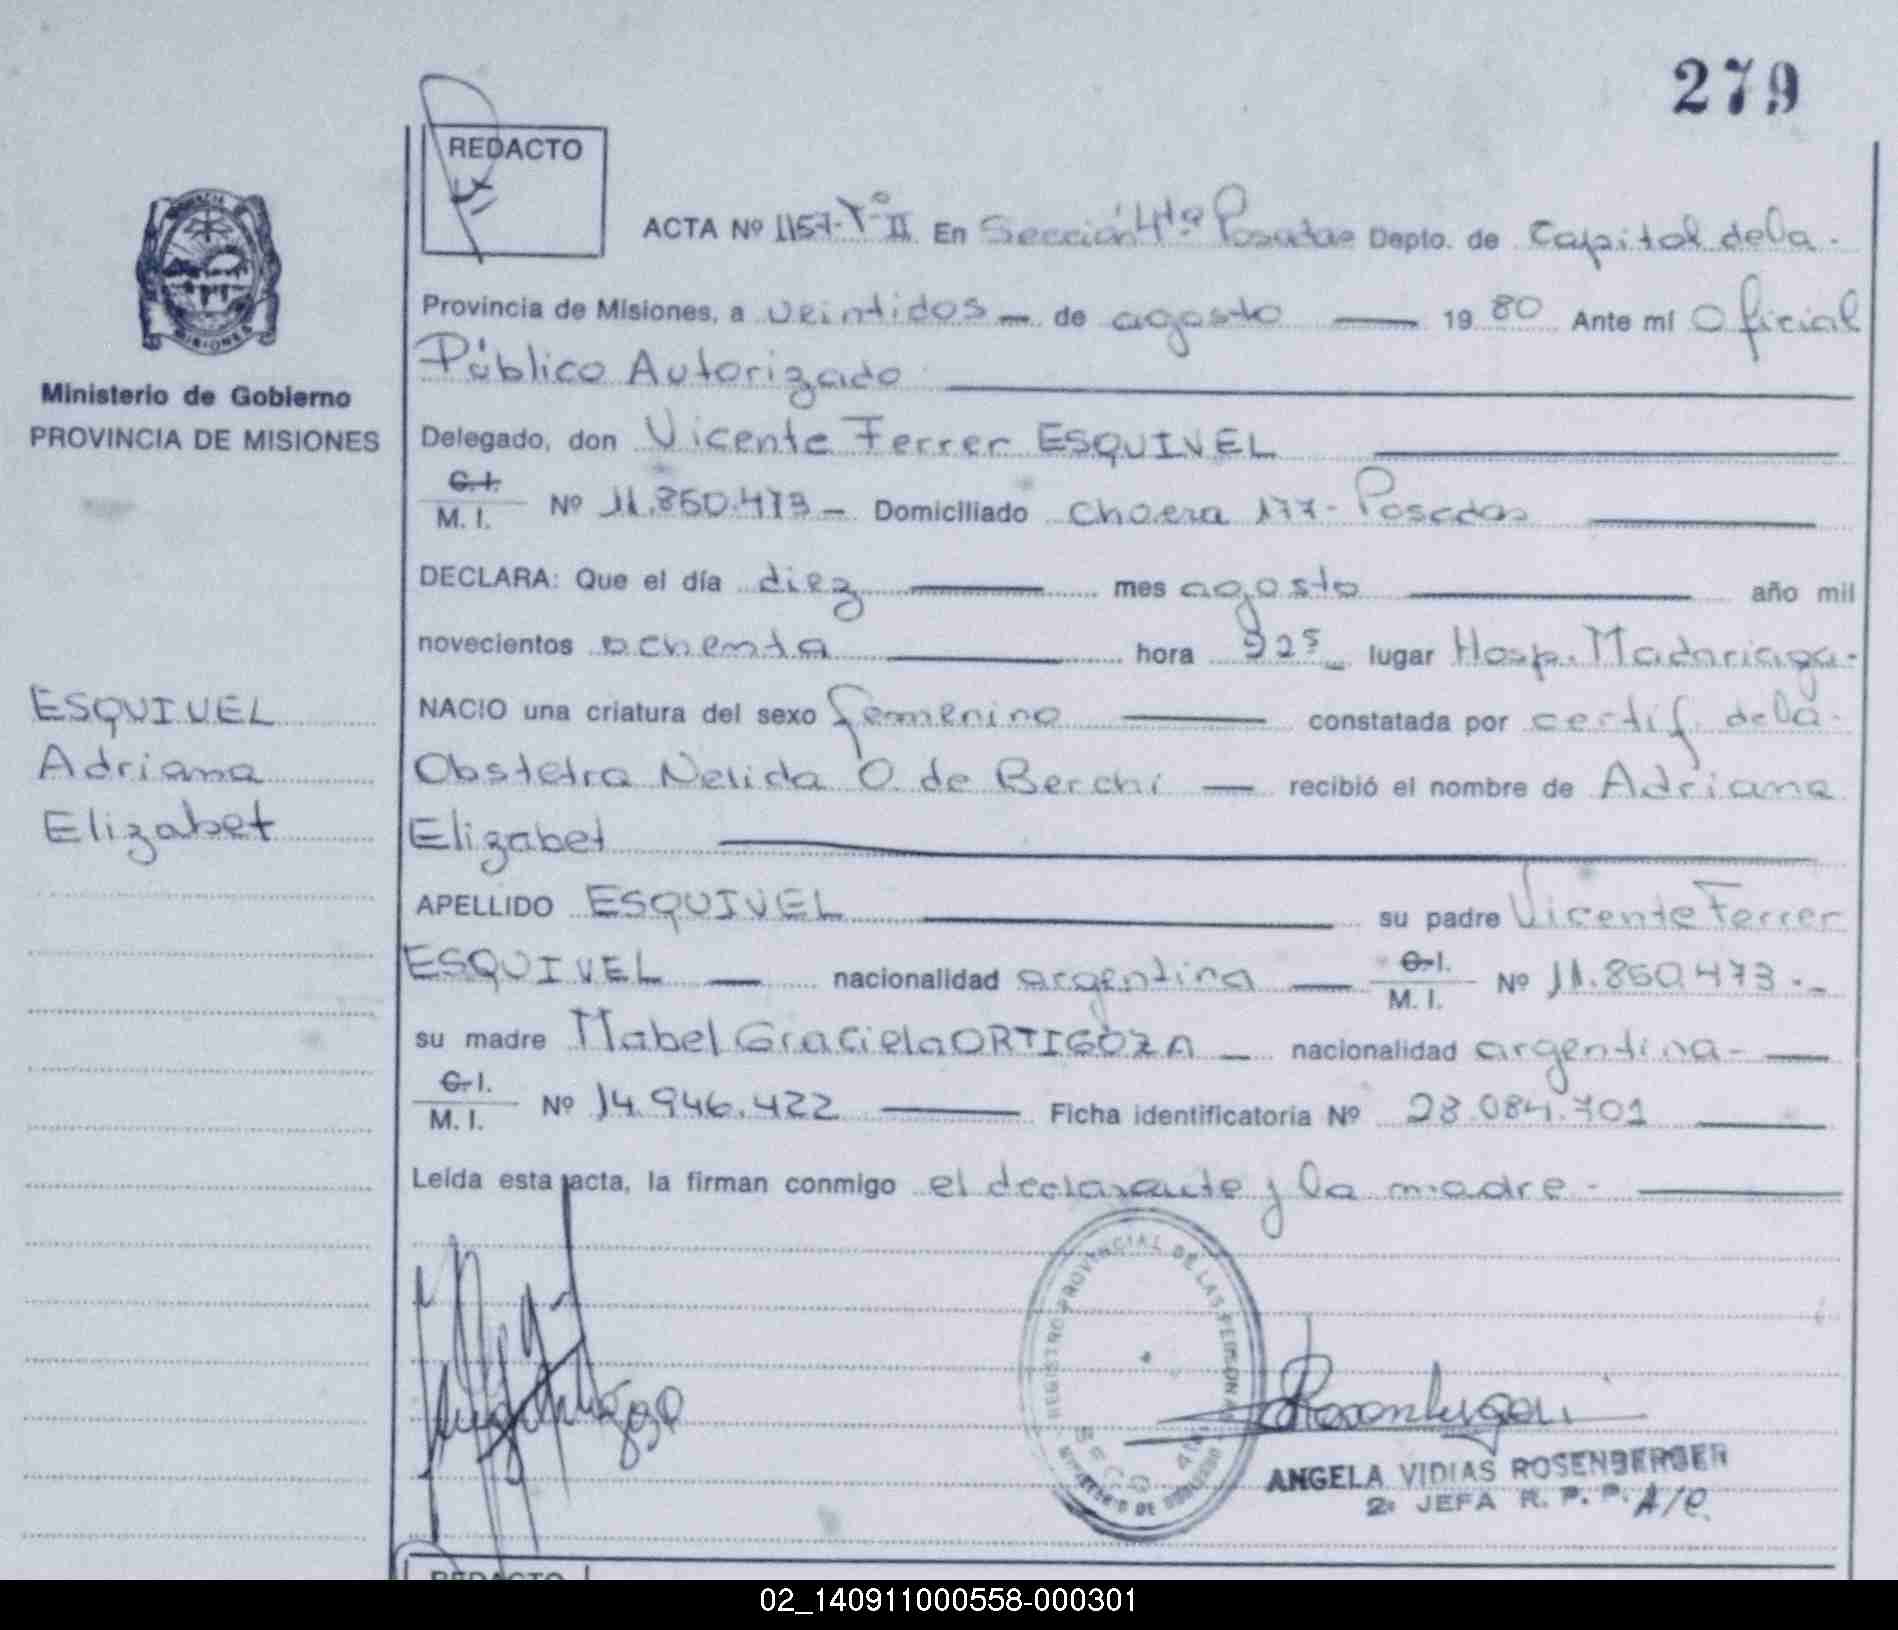 279
REDACTO
ACTA Nº 1157-Tº II En Sección 4ta Posadas Depto. de Capital de la.
Provincia de Misiones, a veintidos — de agosto — 19 80 Ante mí Oficial
Público Autorizado
Delegado, don Vicente Ferrer ESQUIVEL
C. I.
M. I. Nº 11.850.473 — Domiciliado Chacra 177 - Posadas
DECLARA: Que el día diez — mes agosto — año mil
novecientos ochenta — hora 925 — lugar Hosp. Madariaga.
NACIO una criatura del sexo femenino — constatada por certif. de la
Obstetra Nelida O. de Berchi — recibió el nombre de Adriana
Elizabet
APELLIDO ESQUIVEL — su padre Vicente Ferrer
ESQUIVEL — nacionalidad argentina — C. I.
M. I. Nº 11.850.473. -
su madre Mabel Graciela ORTIGOZA — nacionalidad argentina - —
C. I.
M. I. Nº 14.946.422 — Ficha identificatoria Nº 28.084.701
Leída esta acta, la firman conmigo el declarante y la madre -
REGISTRO PROVINCIAL DE LAS PERSONAS
SECC. 4ta
MINISTERIO DE GOBIERNO
ANGELA VIDIAS ROSENBERGER
2ª JEFA R. P. P. A/C.
REDACTO
Ministerio de Gobierno
PROVINCIA DE MISIONES
ESQUIVEL
Adriana
Elizabet
02_140911000558-000301